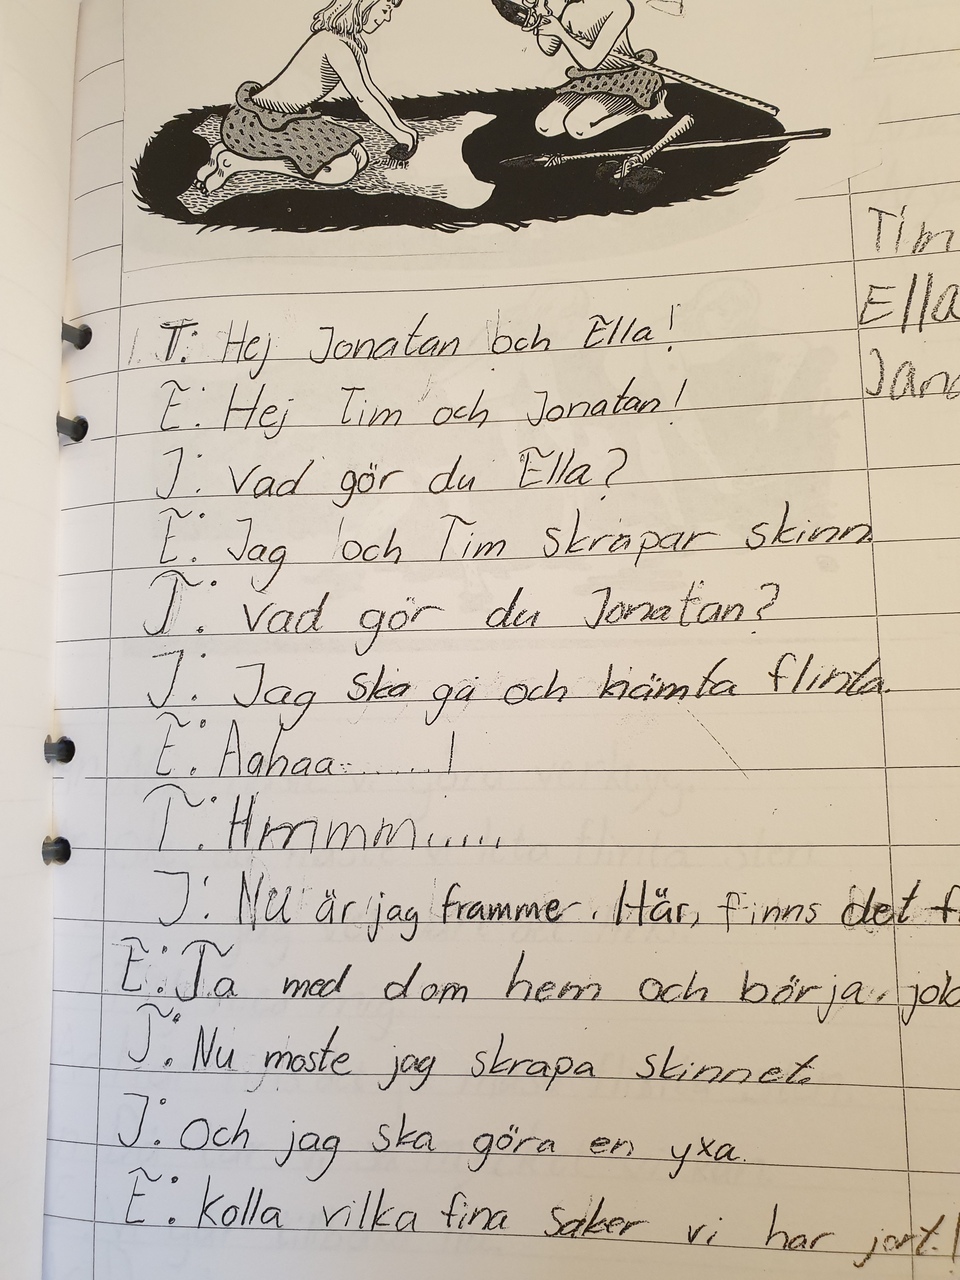 Tim
Ella
T: Hej Jonatan och Ella!
E: Hej Tim och Jonatan!
J: Vad gör du Ella?
E: Jag och Tim skrapar skinn.
T: Vad gör du Jonatan?
J: Jag ska gå och hämta flinta.
E: Aahaa........!
T: Hmmmm.....
J: Nu är jag framme. Här, finns det
E: Ta med dom hem och börja
T: Nu moste jag skrapa skinnet.
J: Och jag ska göra en yxa.
E: Kolla vilka fina saker vi har jort!